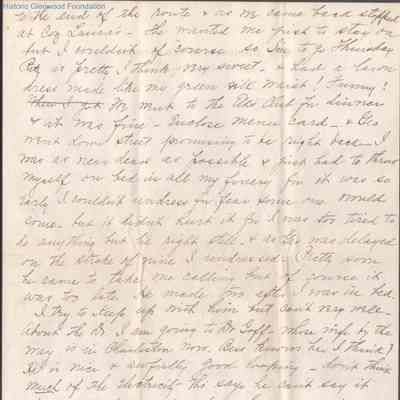 Historic Glenwood Foundation
to the end of the route & as we came back stopped
at Coz Laura's - She wanted me just to stay on
but I wouldn't of course so I'm to go Thursday
is pretty I think, very sweet - & had a lawn
dress made like my green silk waist! Funny!
We went to the Elks Club for dinner
& it was fine - Enclose menu card - & Geo
went down street promising to be right back - I
was as near dead as possible & just had to throw
myself on bed in all my finery for it was so
early I couldn't undress for fear some one would
come - but it didn't hurt it for I was too tired to
do anything but lie right still - & as Geo was delayed
on the stroke of nine I undressed - Pretty soon
he came to take me calling but of course it
was too late. He made two after I was in bed.
I try to keep up with him but can't very well -
About the Dr. I am going to Dr. Goff - whose wife by the
way is in Charleston now. Bess knows her I think?
He is nice & awfully good looking - don't think
much of the electricity tho says he can't say it